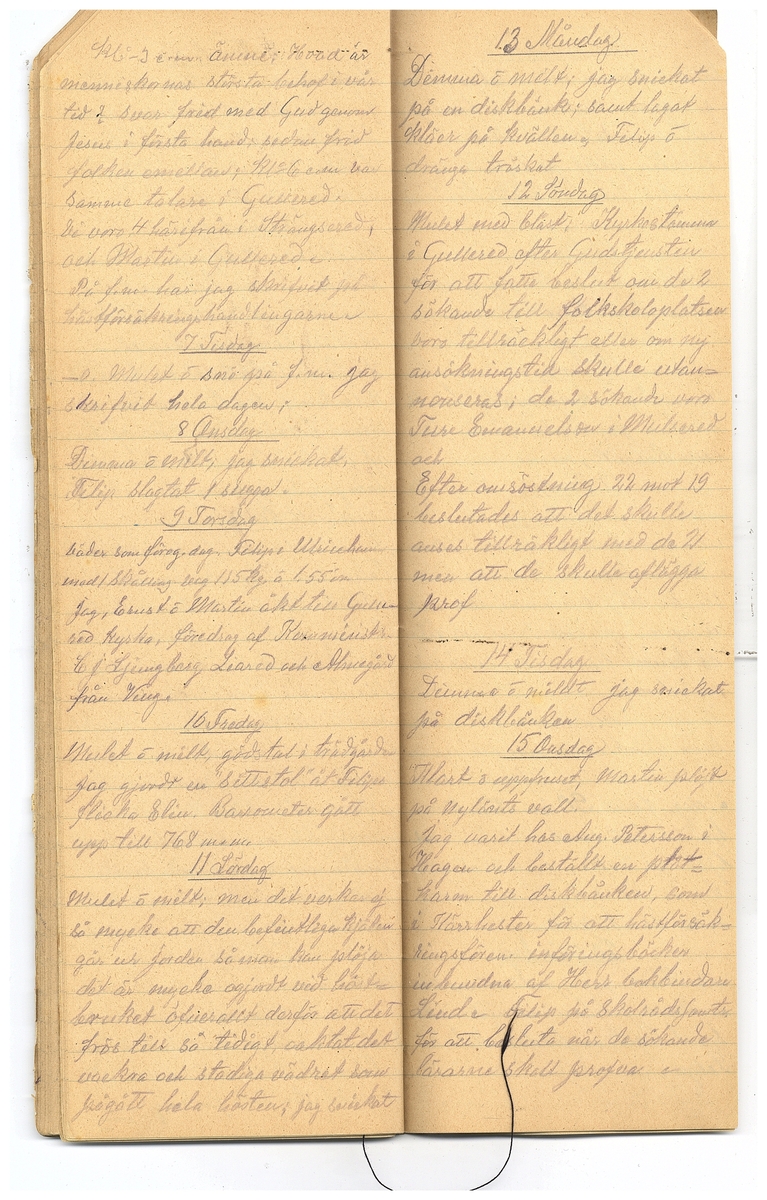 Kl-3 e.m. ämne; Hvad är
menniskornas största behof i vår
tid? svar frid med Gud genom
Jesus i första hand; sedan frid
folken emellan; Kl 6 e.m var
samme talare i Gullered.
Vi voro 4 härifrån i Strängsered,
och Martin i Gullered.
På f.m. har jag skrifvit på
hästförsäkringshandlingarne
7 Tisdag
-0. Mulet ö snö på f.m. jag
skrifvit hela dagen;
8 Onsdag
Dimma ö milt; jag snickat,
Filip slagtat 1 sugga.
9 Torsdag
Väder som föreg. dag. Filip i Ulricehamn
med 1 skålling väg 115 kg. à 1.55 öre
Jag, Ernst ö Martin åkt till Gulle-
red kyrka, föredrag af Kominist.
E J Ljungberg Liared och Almegård
från Ving.
10 Fredag
Mulet ö milt, gödslat i trädgården
Jag gjordt en "sittstol" åt Filips
flicka Elin. Barometer gått
upp till 768 m.m.
11 Lördag
Mulet ö milt; men det verkar ej
så mycke att den befintliga kjälen
går ur jorden så man kan plöja
det är mycke ogjordt vid höst-
bruket öfverallt derför att det
frös till så tidigt, oaktat det
vackra och stadiga vädret som
pågått hela hösten; jag snickat
13 Måndag
Dimma ö milt; jag snickat
på en diskbänk; samt lagat
kläer på kvällen, Filip ö
dränga tråskat
12 Söndag
Mulet med blåst; Kyrkostämma
i Gullered efter Gudstjensten
för att fatte beslut om de 2
sökande till folkskoloplatsen
voro tillräckligt eller om ny
ansökningstid skulle utan-
nonseras; de 2 sökande voro
Ture Emanuelson i Mulsered
och
Efter omröstning 22 mot 19
beslutades att det skulle
anses tillräkligt med de 2
men att de skulle aflägga
prof
14 Tisdag
Dimma ö mildt jag snickat
på diskbänken
15 Onsdag
Klart ö uppfruset, Martin plöjt
på Nylixts vall.
Jag varit hos Aug. Petersson i
Hagen och beställt en plåt-
karm till diskbänken, som
i Kärrhester för att hästförsäk-
ringsfören. införingsböcker
inbundna af Herr bokbindare
Lind. Filip på Skolrådssamtr.
för att besluta när de sökande
lärarne skall profva